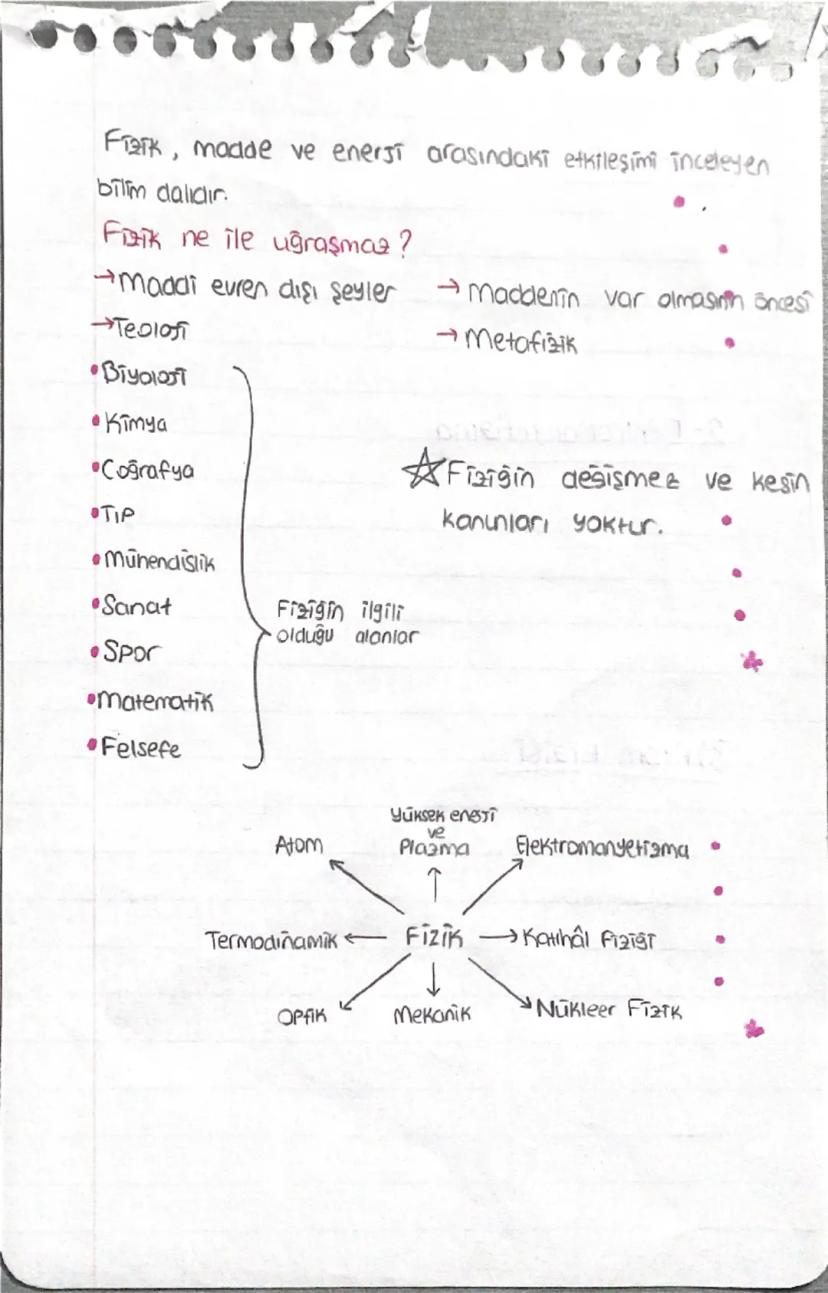 Fizik, madde ve enerji arasındaki etkileşimi inceleyen
bilim dalıdır.
Fizik ne ile uğraşmaz?
→Maddi evren dışı şeyler
→Maddenin var olmasının öncesi
→Teoloji
→Metafizik
•Biyoloji
•Kimya
•Coğrafya
☆Fiziğin değişmez ve kesin
kanunları yoktur.
•Tıp
•Mühendislik
•Sanat
•Spor
•Matematik
•Felsefe
Fiziğin ilgili
olduğu alanlar
Yüksek enerji
ve
Plazma
Atom
Elektromanyetizma
Termodinamik ← Fizik → Katıhâl Fiziği
Optik
Mekanik
Nükleer Fizik